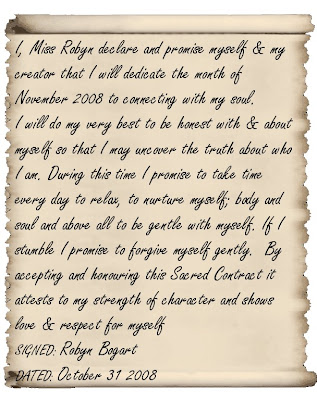 I, Miss Robyn declare and promise myself & my
creator that I will dedicate the month of
November 2008 to connecting with my soul.
I will do my very best to be honest with & about
myself so that I may uncover the truth about who
I am. During this time I promise to take time
every day to relax, to nurture myself; body and
soul and above all to be gentle with myself. If I
stumble I promise to forgive myself gently. By
accepting and honouring this Sacred Contract it
attests to my strength of character and shows
love & respect for myself
SIGNED: Robyn Bogart
DATED: October 31 2008